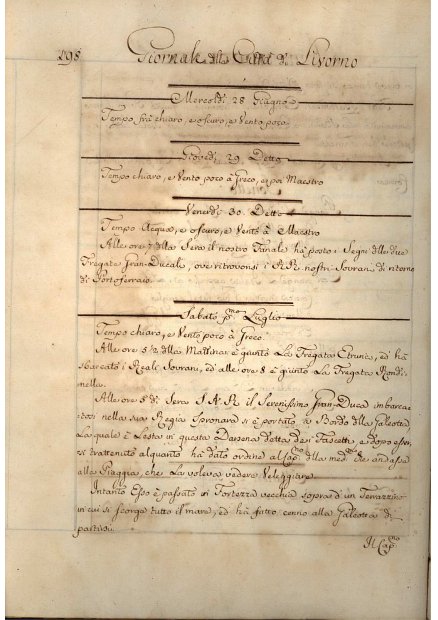 298 Giornale della Città di Livorno
Mercoledì 28 Giugno
Tempo frà chiaro, e oscuro, e Vento poco
Giovedì 29 Detto
Tempo chiaro, e Vento poco à Greco, e poi Maestro
Venerdì 30. Detto
Tempo Acqua, e oscuro, e Vento à Maestro
Alle ore 7 dlla Sera il nostro Fanale hà posto i Segni dlle due
Fregate Gran-Ducali, ove ritrovonsi i R.R. nostri Sovrani di ritorno
di Portoferraio
Sabato p.mo Luglio
Tempo chiaro, e Vento poco à Greco.
Alle ore 5 1/2 dlla Mattina è giunto La Fregata Etruria, ed hà
sbarcato i Reali Sovrani, ed alle ore 8 è giunto La Fregata Rondi-
nella.
Alle ore 5 di Sera S.A.R. il Serenissimo Gran-Duca imbarca-
tosi nella sua Regia Spronara si è portato à Bordo dlla Galeotta
La quale è Lesta in questa Darsena detta dei Fascetti, e dopo esser-
si trattenuto alquanto hà dato ordine al Cap.no dlla med.ma che andasse
alla Piaggia, che La voleva vedere Veleggiare.
Intanto Esso è passato in Fortezza vecchia sopra d'un Terrazzino
in cui si scorge tutto il mare, ed hà fatto cenno alla Galeotta di
partirsi.
Il Cap.no